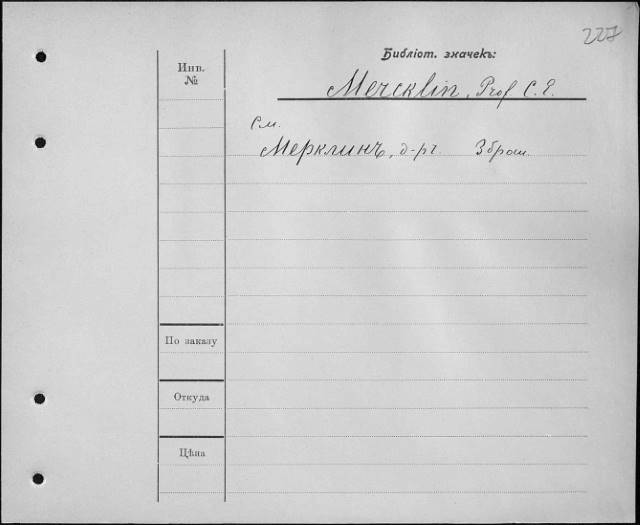 227
Библіот. значекъ:
Инв.
№
Mercklin, Prof C. E.
См.
Мерклинъ, д-ръ. 3 брош.
По заказу
Откуда
Цѣна